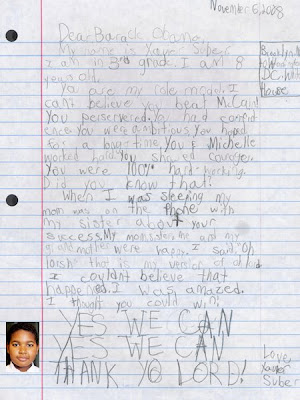 November 6, 2008
Dear Barack Obama,
My name is Xavier Suber
I am in 3rd grade. I am 8
years old.
Yo are my role model. I
cant believe you beat McCain!
You perservered. Yo had confid
ence. You were ambitious. You hoped
for a long time. You & Michelle
worked hard. You showed courage.
You were 100% hard-working.
Did you know that!
When I was sleeping my
mom was on the phone with
my sister about your
success. My mom, sister, me and my
mother were happy. I said, "Oh
lorsh! that is my version of oh lord
I couldnt believe that
happened. I was amazed.
I thought you could win!
YES WE CAN
YES WE CAN
THANK YO LORD!
Brooklyn, N
DC. Whit
House
Love,
Xavier
Suber